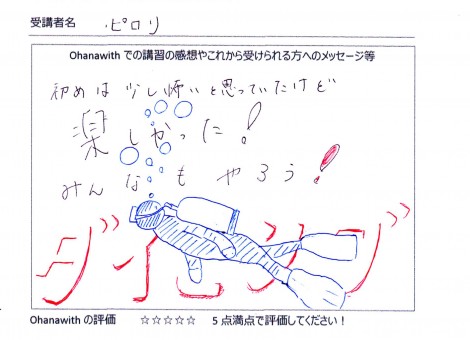 受講者名 ピロリ
Ohanawithでの講習の感想やこれから受けられる方へのメッセージ等
初めは少し怖いと思っていたけど
楽しかった!
みんなもやろう!
ダイビング
Ohanawithの評価 ☆☆☆☆☆ 5点満点で評価してください!